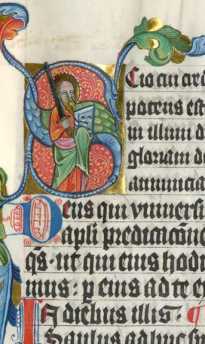 Scio cui cred
potens est
in illum di
gloriam de
annuncia
Deus qui vniuers
apli predicacōne
qs ut qui eius hodi
imus p eius ad te ex
In diebus illis
Saulus adhuc sp